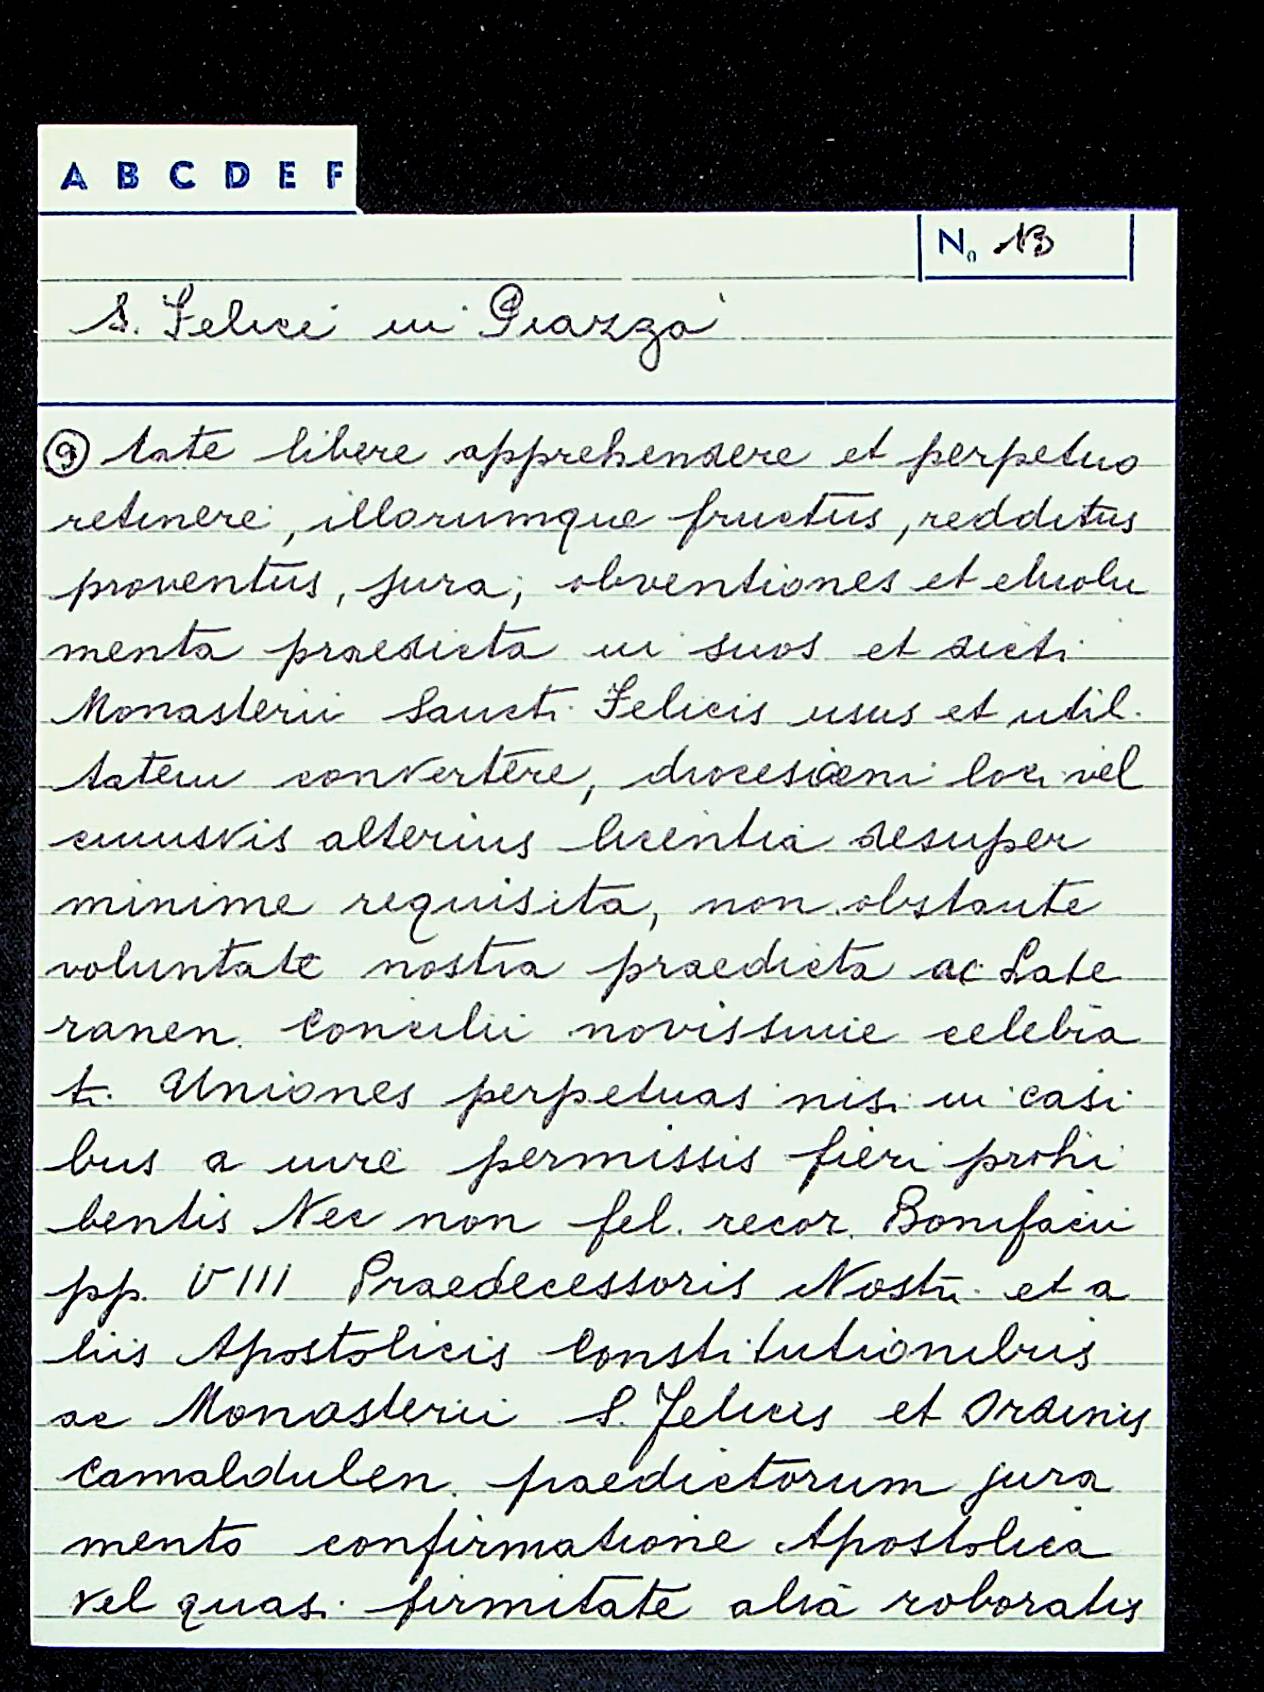 A B C D E F
No 13
S. Felice in Piazza
⑨ tate libere apprehendere et perpetuo
retinere, illorumque fructus, redditus
proventus, jura, obventiones et emolu
menta praedicta in suos et dicti
Monasterii Sancti Felicis usus et utili
tatem convertere, diocesani loci vel
cuiusvis alterius licentia desuper
minime requisita, non obstante
voluntate nostra praedicta ac Late
ranen. Concilii novissime celebra
ti. Uniones perpetuas nisi in casi
bus a iure permissis fieri prohi
bentis Nec non fel. recor. Bonifacii
pp. VIII Praedecessoris Nostri et a
liis Apostolicis Constitutionibus
ac Monasterii S. Felicis et Ordinis
Camaldulen. praedictorum jura
mento confirmatione Apostolica
vel quasi firmitate alia roboratis